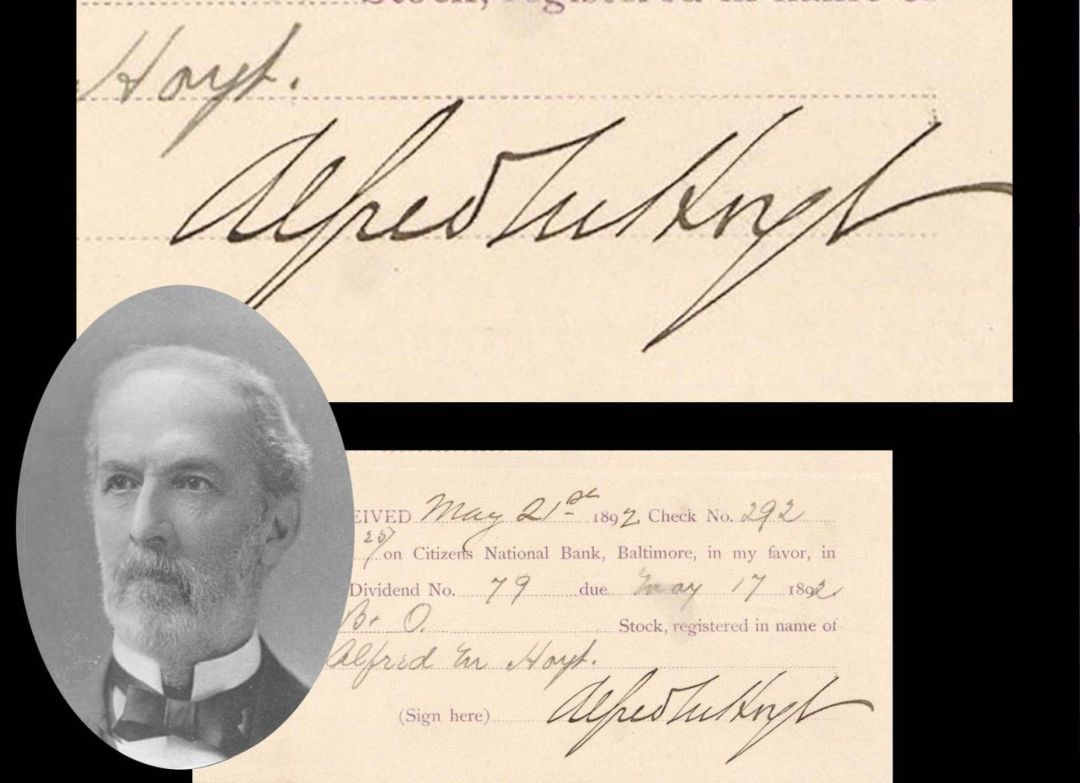 Stock, registered in name of
Hoyt.
Alfred M Hoyt
EIVED May 21st 1892 Check No. 292
25/ on Citizens National Bank, Baltimore, in my favor, in
Dividend No. 79 due May 17 1892
B+ O. Stock, registered in name of
Alfred M Hoyt.
(Sign here) Alfred M Hoyt